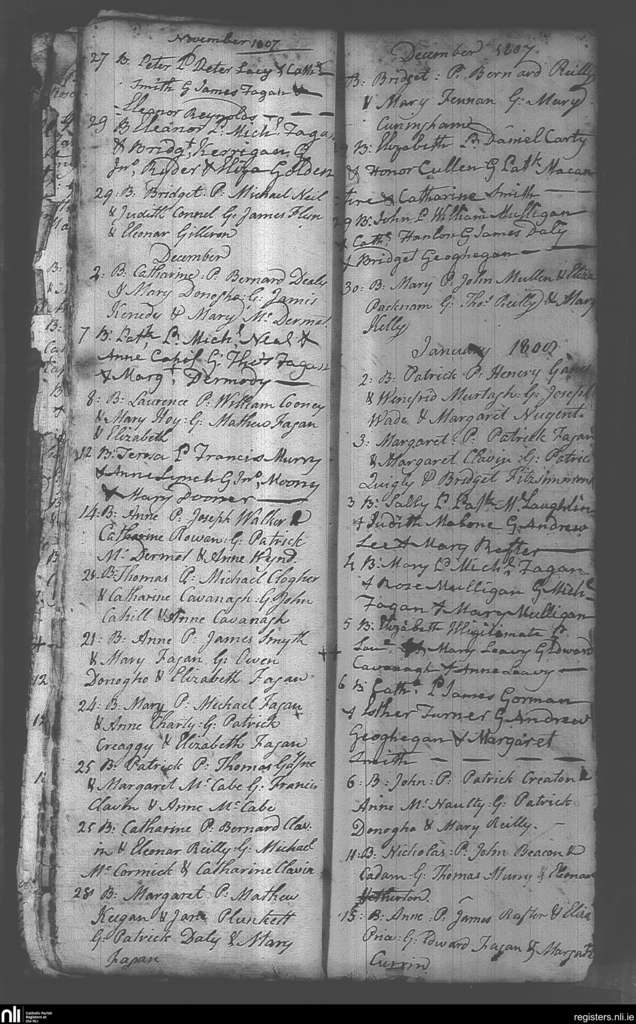 November 1807
27 B. Peter P Peter Lacy & Cathe
Smith G James Fagan &
Eleanor Reynolds
29 B Eleanor P. Michl Fagan
& Bridgt Kerrigan G
Jno Ryder & Eliza Golden
29. B. Bridget: P. Michael Neil
& Judith Connel G: James Flyn
& Eleonar Gilleron
December
2. B. Catharine: P. Bernard Deale
& Mary Donogho: G: James
Kenedy & Mary Mc Dermot
7 B. Patk P. Michl Neal &
Anne G. Thos Fagan
& Margt Dermody
8: B: Laurence P: William Cooney
& Mary Hoy: G: Mathew Fagan
& Elizabeth
12 B. Teresa P Francis Murry
& Anne Lynch G Jno Mooney
& Mary Dooner
14: B: Anne P: Joseph Walker &
Catharine Rowan: G: Patrick
Mc Dermot & Anne Kynd
20 B: Thomas P: Michael Clogher
& Catharine Cavanagh: G: John
Cahill & Anne Cavanagh
21: B: Anne P: James Smyth
& Mary Fagan G: Owen
Donogho & Elizabeth Fagan
24: B: Mary P: Michael Fagan
& Anne Charty: G: Patrick
Creaggy & Elizabeth Fagan
25 B: Patrick P: Thomas Gaffne
& Margaret Mc Cabe G: Francis
Clavin & Anne McCabe
25 B: Catharine P: Bernard Clav-
in & Eleonar Reilly: G: Michael
McCormick & Catharine Clavin
28: B: Margaret P: Mathew
Keegan & Jane Plunkett
G: Patrick Daly & Mary
Fagan
December 1807.
B: Bridget: P: Bernard Reilly
& Mary Fennan G: Mary
Cuningham
B: Elizabeth P. Daniel Carty
& Honor Cullen G Patk Macan
tire & Catharine Smith
29 B: John P William Mulligan
& Cathe Hanlon G James Daly
& Bridget Geoghegan
30: B: Mary P. John Mullen & Eliza
Packnam G: Thos Reilly & Mary
Kelly
January 1808
2: B: Patrick P: Henery
& Winefrid Murtagh: G: Joseph
Wade & Margaret Nugent
3: Margaret: P: Patrick Fagan
& Margaret Clavin: G: Patrick
Quigly & Bridget Fitzsimmons
3 B: Sally P. Patk McLaughlin
& Judith Malone G Andrew
Lee & Mary
4 B: Mary P Michl Fagan
& Rose Mulligan G Michl
Fagan & Mary Mulligan
5 B: Elizabeth Illigitimate P.
& Mary Leavy G Edward
Cavanagh & Anne Leavy
6 B Cathe P James Gorman
& Esther Turner G Andrew
Geoghegan & Margaret
Smith
6: B: John: P: Patrick Creaton &
Anne McNaulty G: Patrick
Donogho & Mary Reilly.
11: B: Nicholas: P: John Beacon &
G: Thomas Murry & Eleonar
Hetherton.
15: B: Anne: P: James Rafter & Eliza
Price: G: Edward Fagan & Margate
Currin
nli
Catholic Parish
Registers at
the NLI
registers.nli.ie